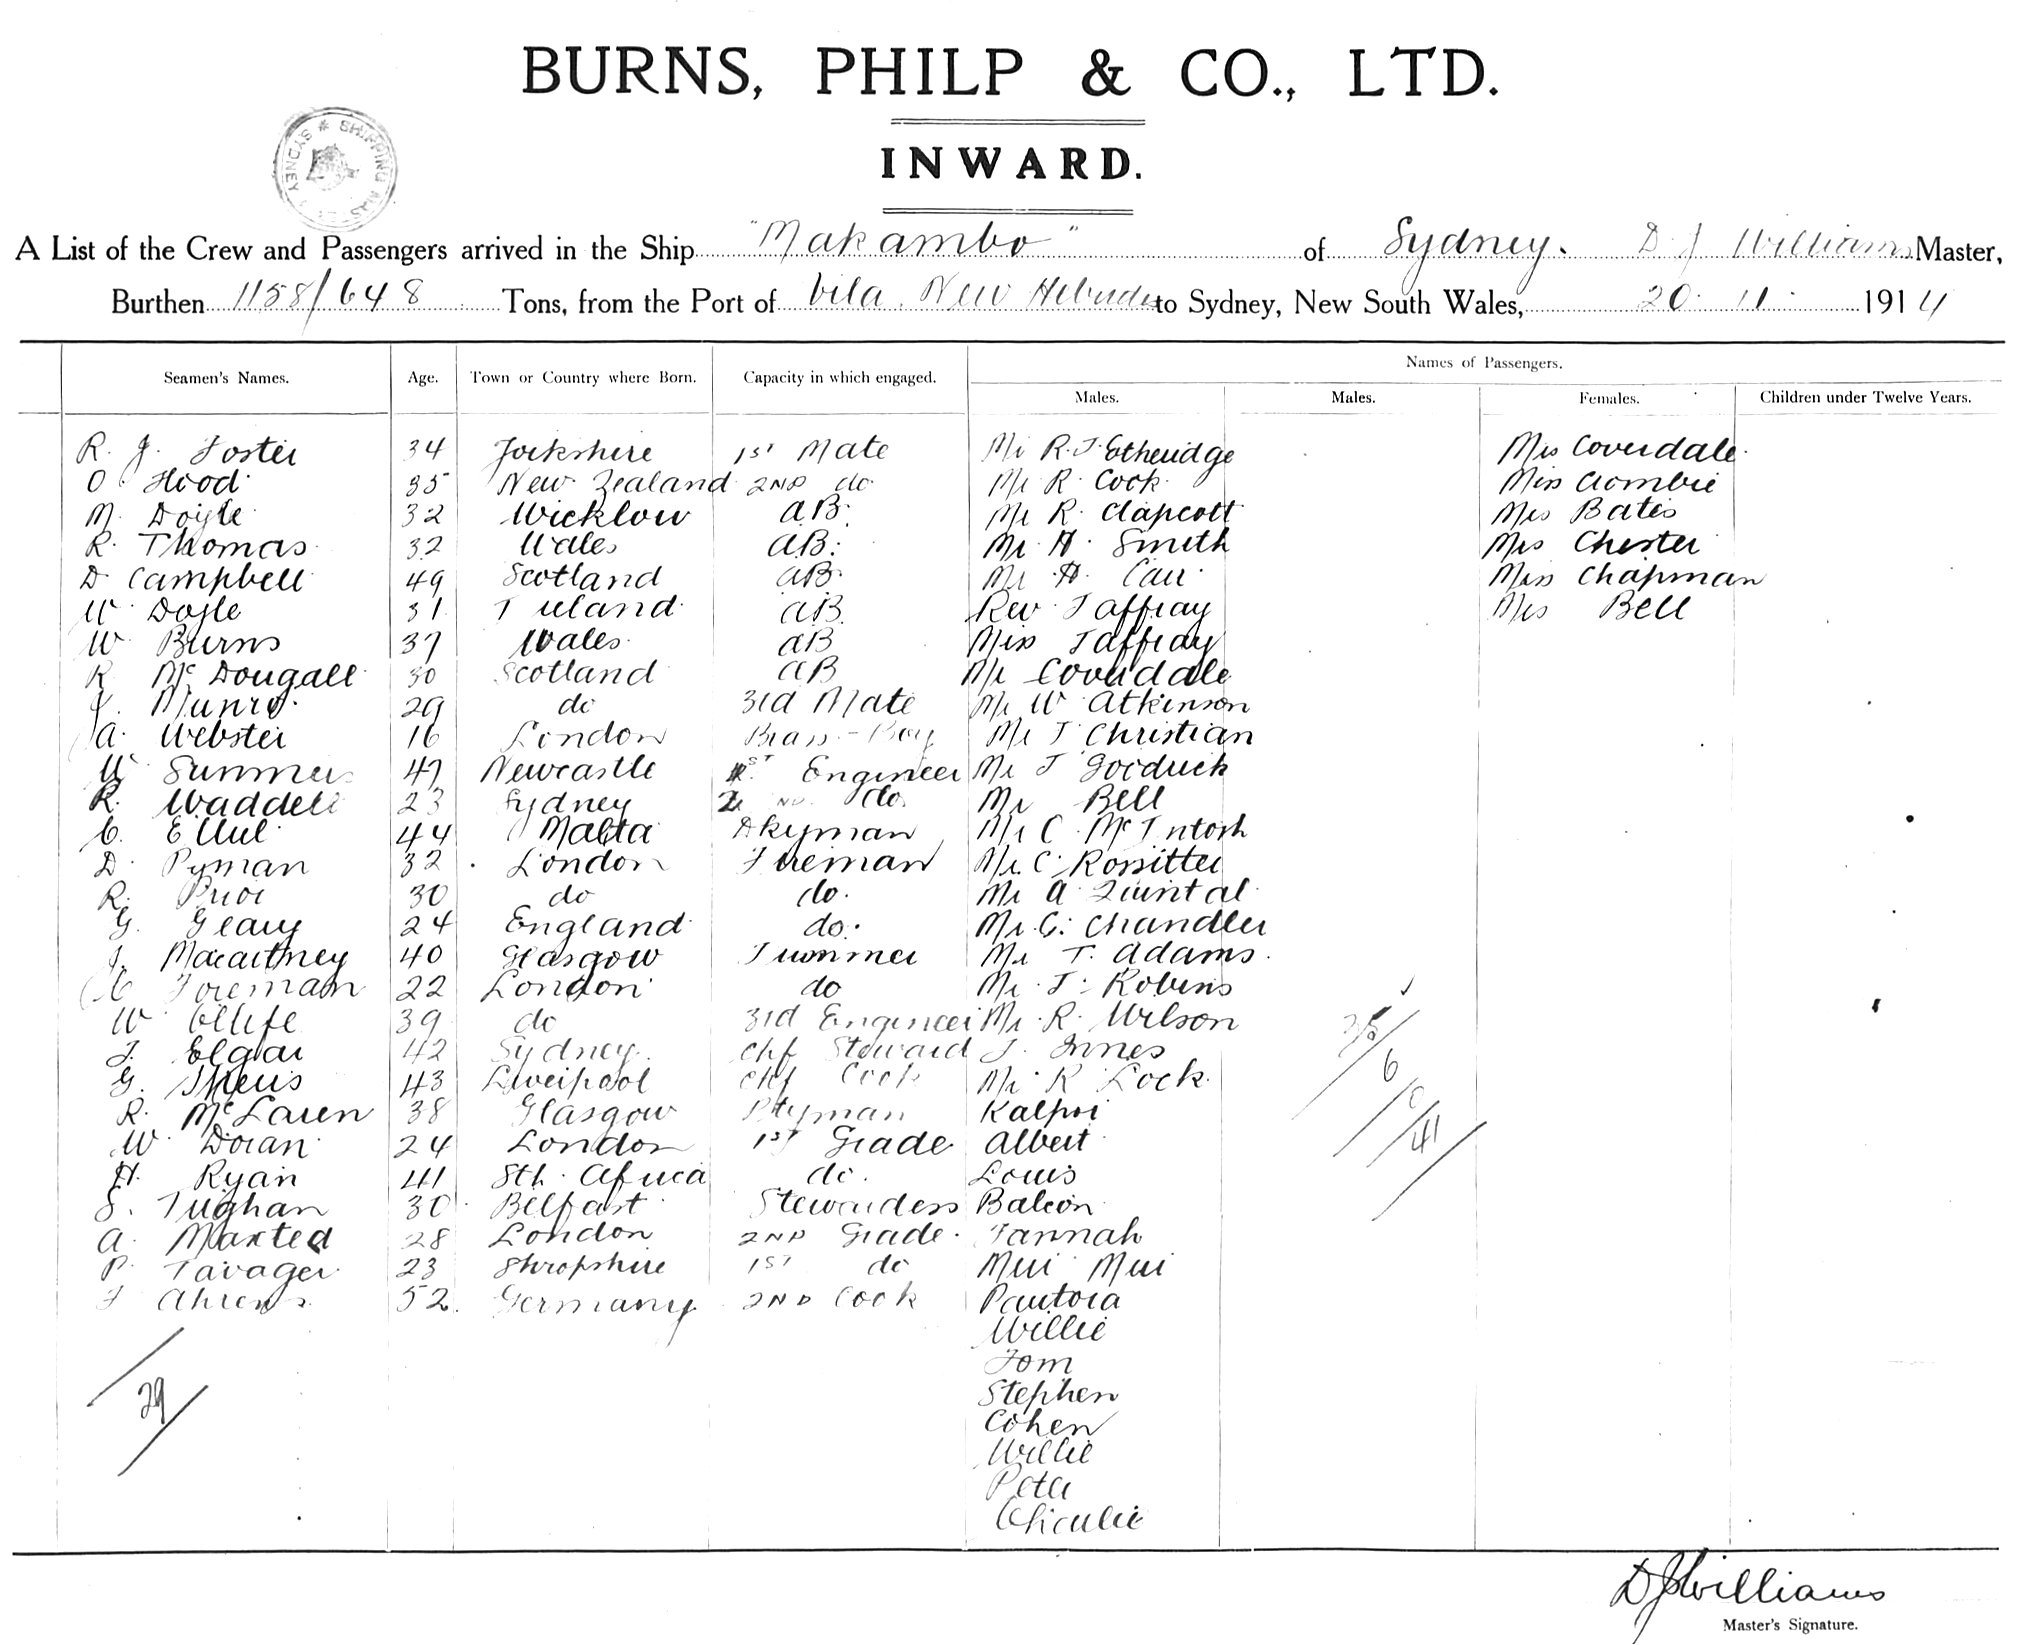 BURNS, PHILP & CO., LTD.
INWARD.
SYDNEY * SHIPPING MASTER
A List of the Crew and Passengers arrived in the Ship "Makambo" of Sydney. D J Williams Master,
Burthen 1158/648 Tons, from the Port of Vila, New Hebrides to Sydney, New South Wales, 20. 11. 1914
Names of Passengers.
Seamen's Names. Age. Town or Country where Born. Capacity in which engaged. Males. Males. Females. Children under Twelve Years.
R. J. Foster 34 Yorkshire 1ST Mate Mr R.J. Etheridge Mrs Coverdale
O Hood 35 New Zealand 2ND do Mr R Cook Miss Crombie
M. Doyle 32 Wicklow AB. Mr R. Clapcott Mrs Bates
R. Thomas 32 Wales AB. Mr H. Smith Mrs Chester
D Campbell 49 Scotland AB. Mr H. Carr Miss Chapman
W Doyle 31 Ireland AB. Rev Jaffray Mrs Bell
W Burns 37 Wales AB Miss Jaffray
R McDougall 30 Scotland AB Mr Coverdale
J. Munro 29 do 3rd Mate Mr W Atkinson
A. Webster 16 London Brass-Boy Mr J Christian
W Summers 47 Newcastle 1ST Engineer Mr J Goodrick
R. Waddell 23 Sydney 2ND do. Mr Bell
C. Ellul 44 Malta Dkyman Mr C McIntosh
D. Pyman 32 London Fireman Mr. C. Rossitter
R. Prior 30 do do. Mr A Quintal
G. Geary 24 England do. Mr. C. Chandler
J. Macartney 40 Glasgow Trimmer Mr T. Adams.
C Foreman 22 London do Mr. J. Robins
W 39 do 3rd Engineer Mr. R. Wilson
J. Elgar 42 Sydney. Chf Steward J. Innes
G. 43 Liverpool Chf Cook Mr R Lock.
R. McLaren 38 Glasgow Ptyman Kalpoi
W. Doran 24 London 1ST Grade Albert
H. Ryan 41 Sth. Africa do. Louis
S. Tughan 30 Belfast Stewardess Baleon
A. Maxted 28 London 2ND Grade. Tannah
P. Tavager 23 Shropshire 1ST do Mui Mui
J Ahrens 52 Germany 2ND Cook Pautora
Willie
Tom
Stephen
Cohen
Willie
Peter
Charlie
29
35/
6
0
41
DJWilliams
Master's Signature.